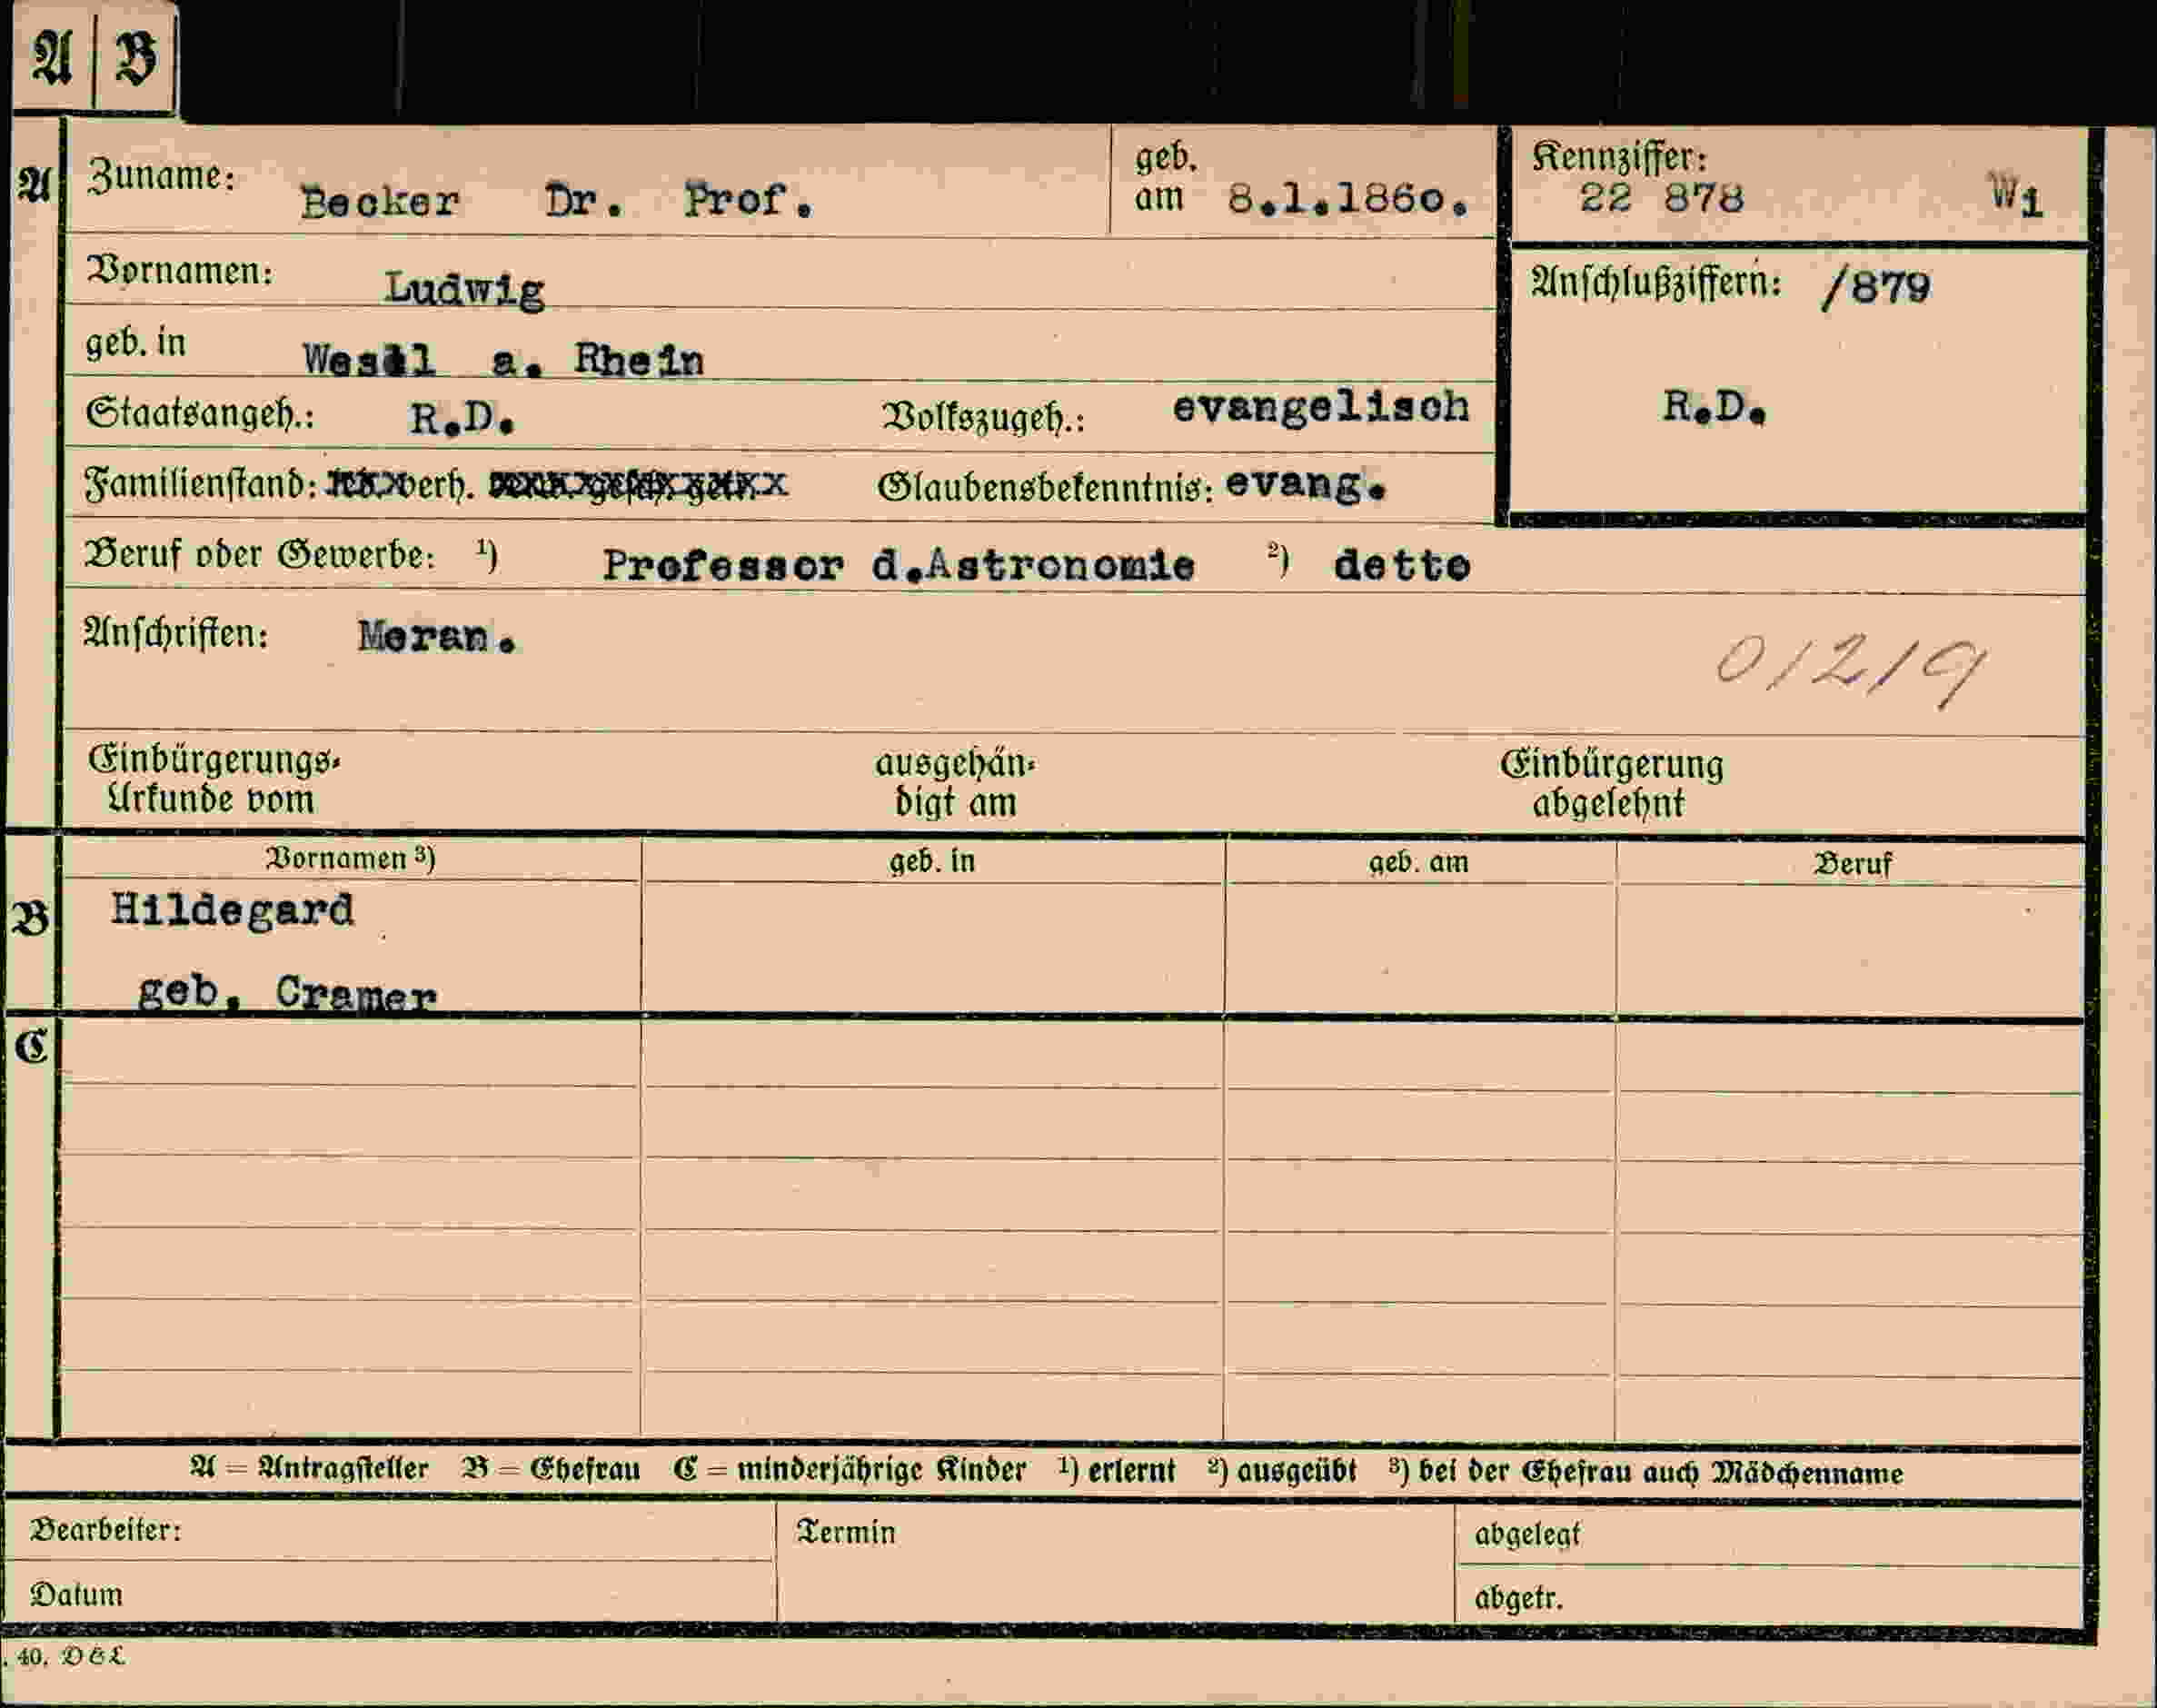 A B
A Zuname: Becker Dr. Prof. geb. am 8.1.1860. Kennziffer: 22 878 Wi
Vornamen: Ludwig Anschlußziffern: /879
geb. in a. Rhein
Staatsangeh.: R.D. Volkszugeh.: evangelisch R.D.
Familienstand: verh. Glaubensbekenntnis: evang.
Beruf oder Gewerbe: ¹) Professor d.Astronomie ²) detto
Anschriften: Meran.
01219
Einbürgerungs- ausgehän- Einbürgerung
Urkunde vom digt am abgelehnt
Vornamen ³) geb. in geb. am Beruf
B Hildegard
geb. Cramer
C
A = Antragsteller B = Ehefrau C = minderjährige Kinder ¹) erlernt ²) ausgeübt ³) bei der Ehefrau auch Mädchenname
Bearbeiter: Termin abgelegt
Datum abgetr.
. 40. D&L